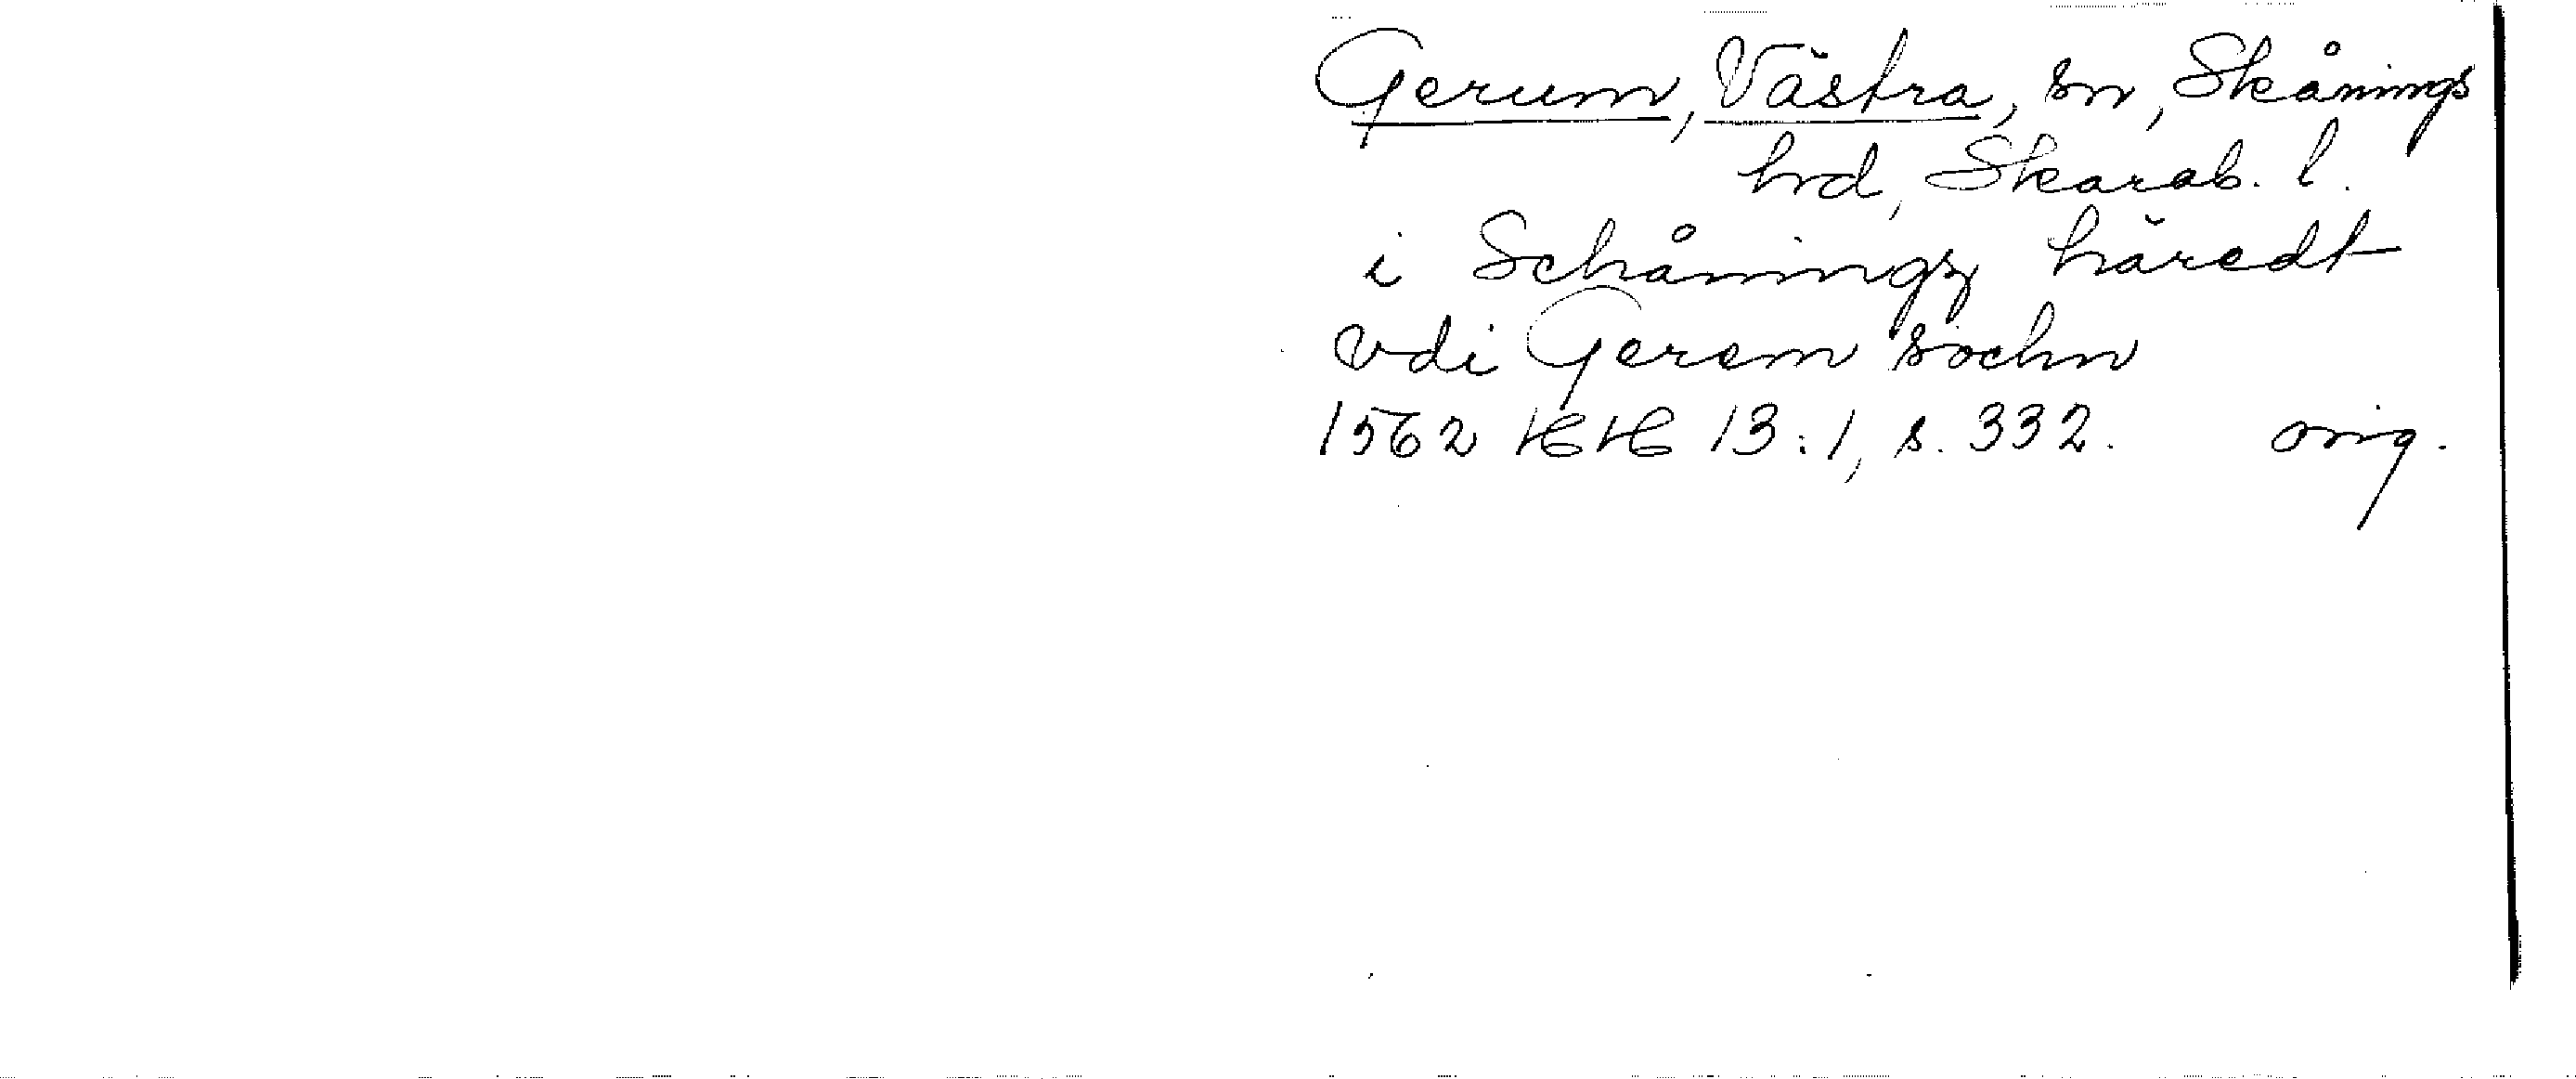 Gerum, Västra, sn, Skånings
hrd, Skarab. l.
i Schåningz häredt
vdi Gerem sochn
1562 HH 13:1, s. 332. orig.